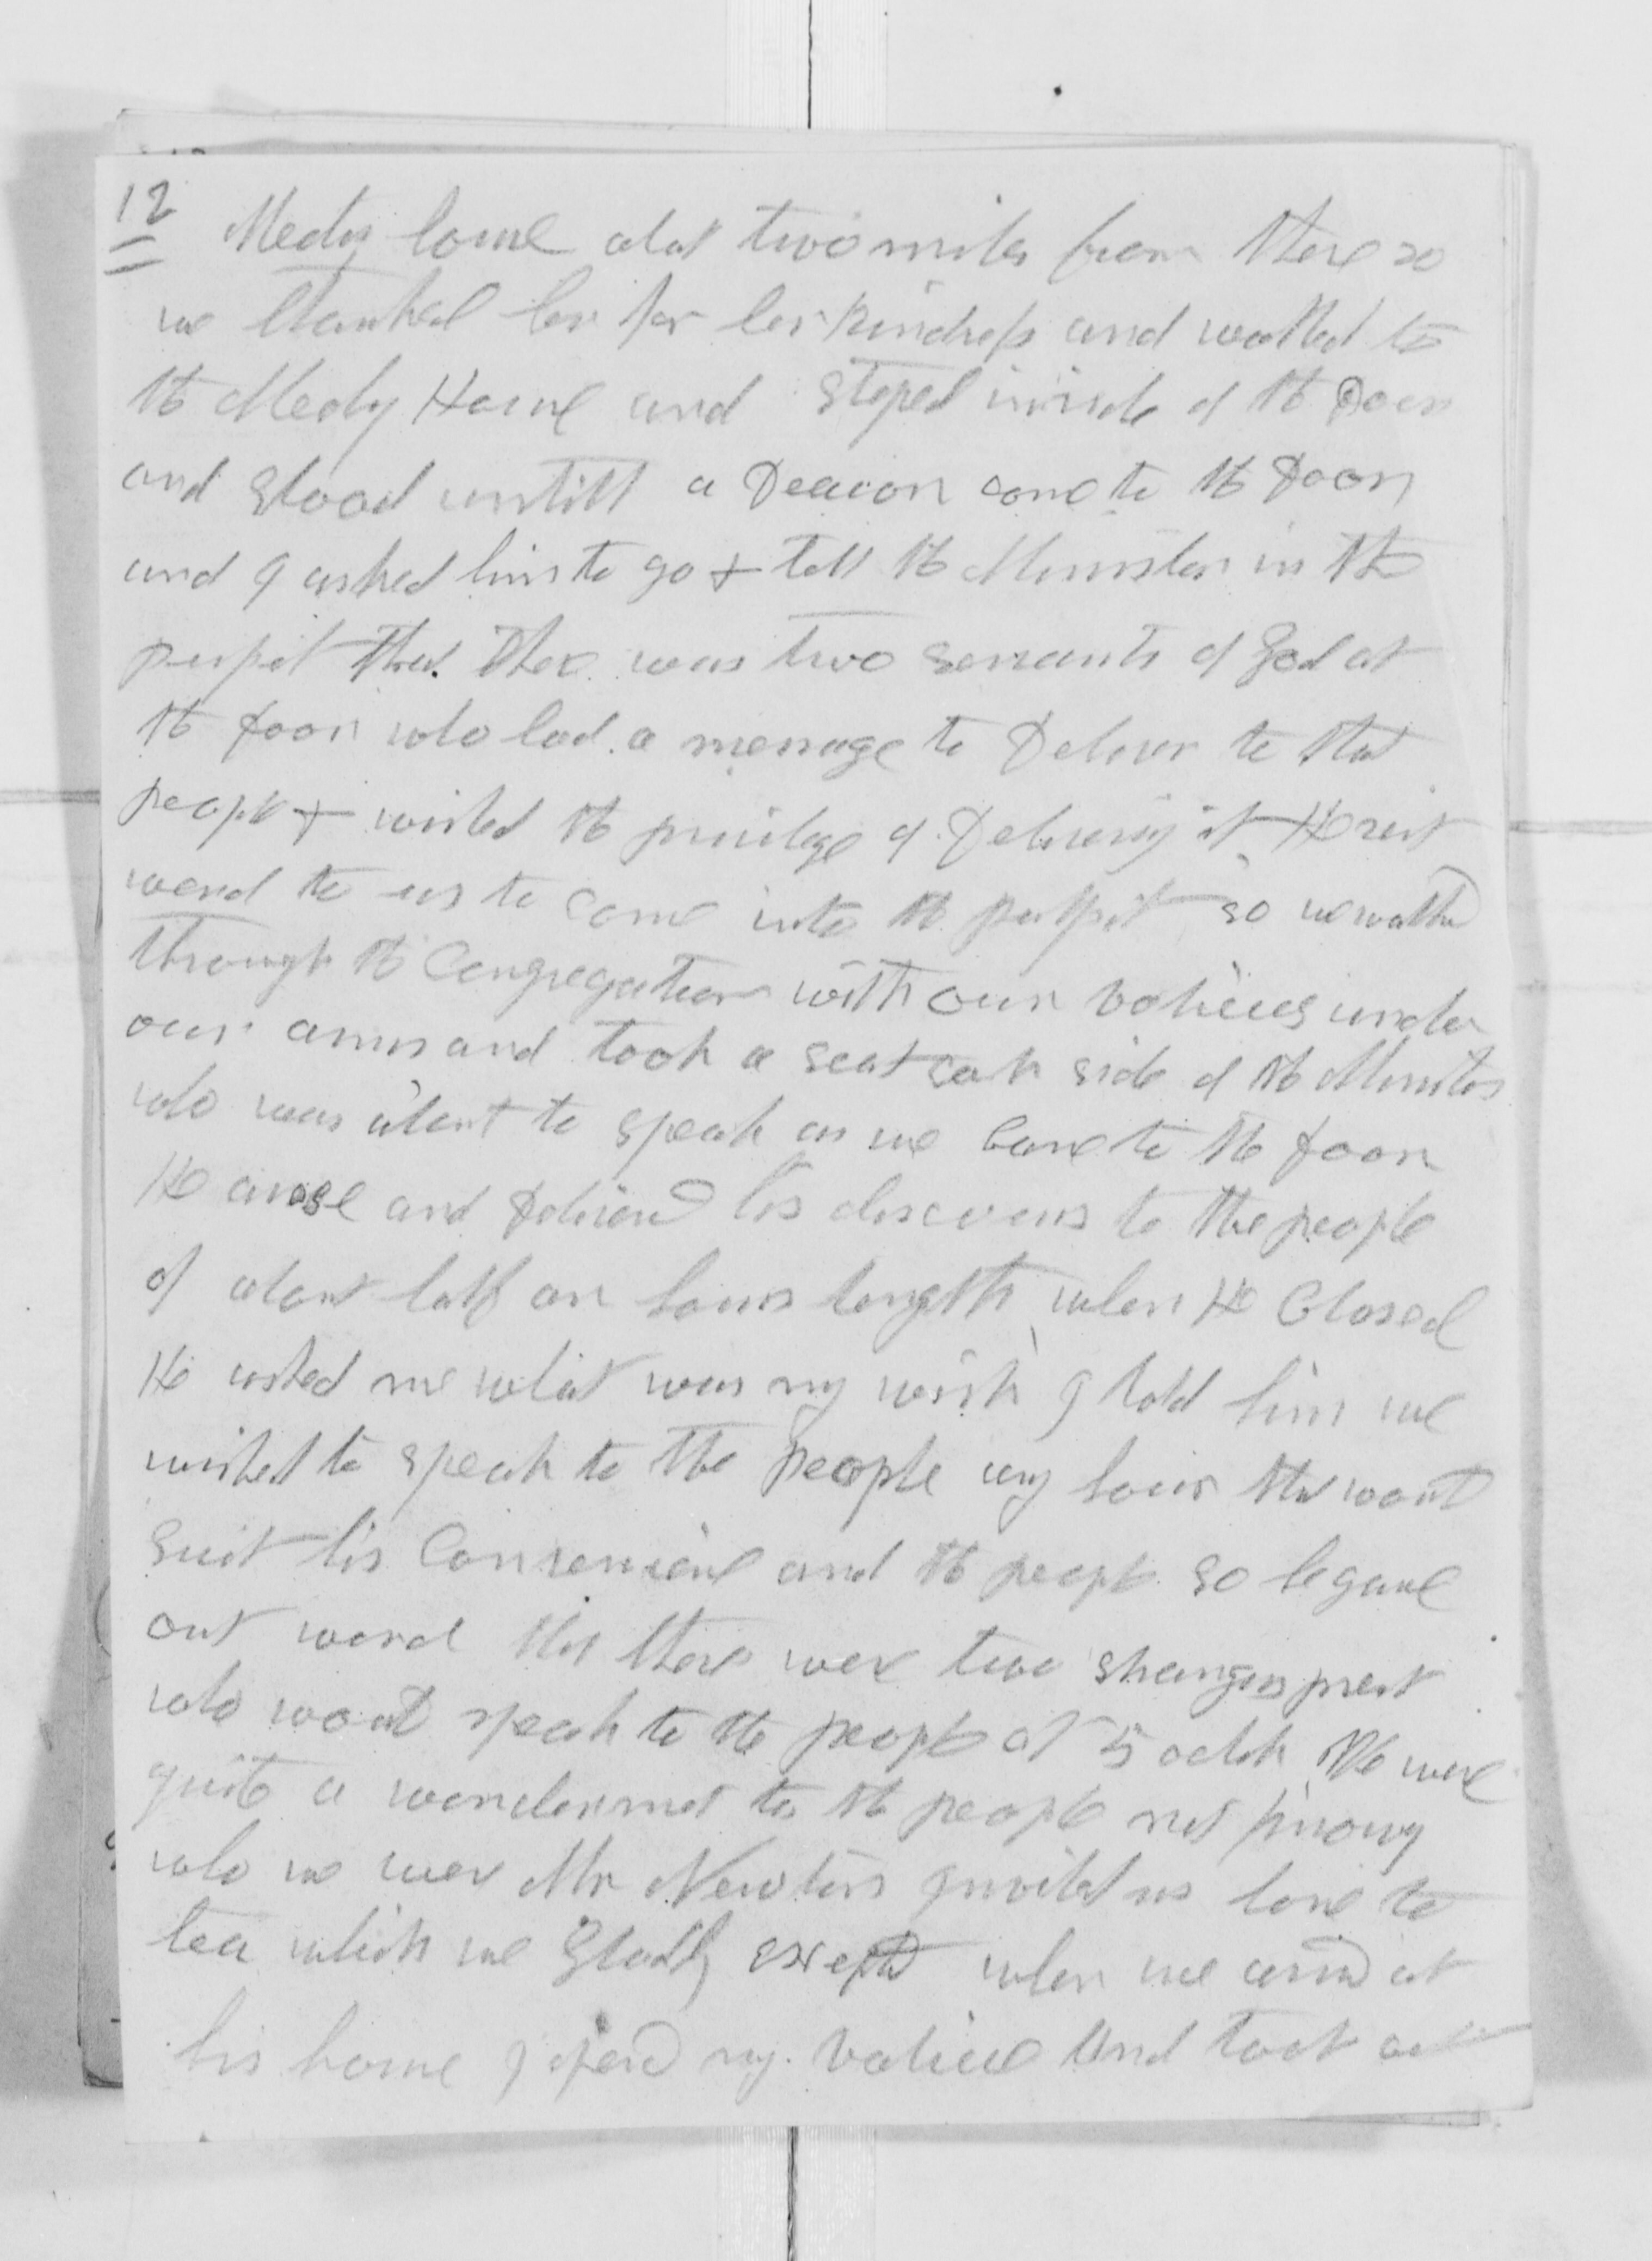 12 Meetig house about two miles from there so
we thanked her for her kindness and walked to
the Meetig House and Stoped inside of the Door
and Stood untill a Deacon come to the Door
and I asked him to go & tell the Minister in the
purpit that ther was two servants of God at
the Door who had a message to Deliver to that
people & wished the privilege of Delivering it He sent
word to us to come into the pulpit so we walked
through the Congregation with our valieces under
our arms and took a seat each side of the Minister
who was about to speak as we Came to the Door
He arose and Delivered his discours to the people
of about half an hours length when He Closed
He asked me what was my wish I told him we
wished to speak to the people any hour that would
suit his Convenience and the people so he gave
out word that there were two strangers present
who would speak to the people at 5 oclok We were
quite a wonderment to the people not knowing
who we were Mr Newton invited us home to
tea which we Gladly excepted when we arived at
his home I opened my valiece and took out